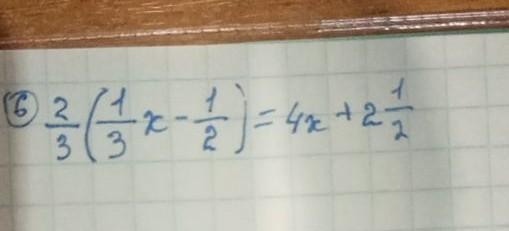 ⑥ 2/3 (1/3 x - 1/2) = 4x + 2 1/2